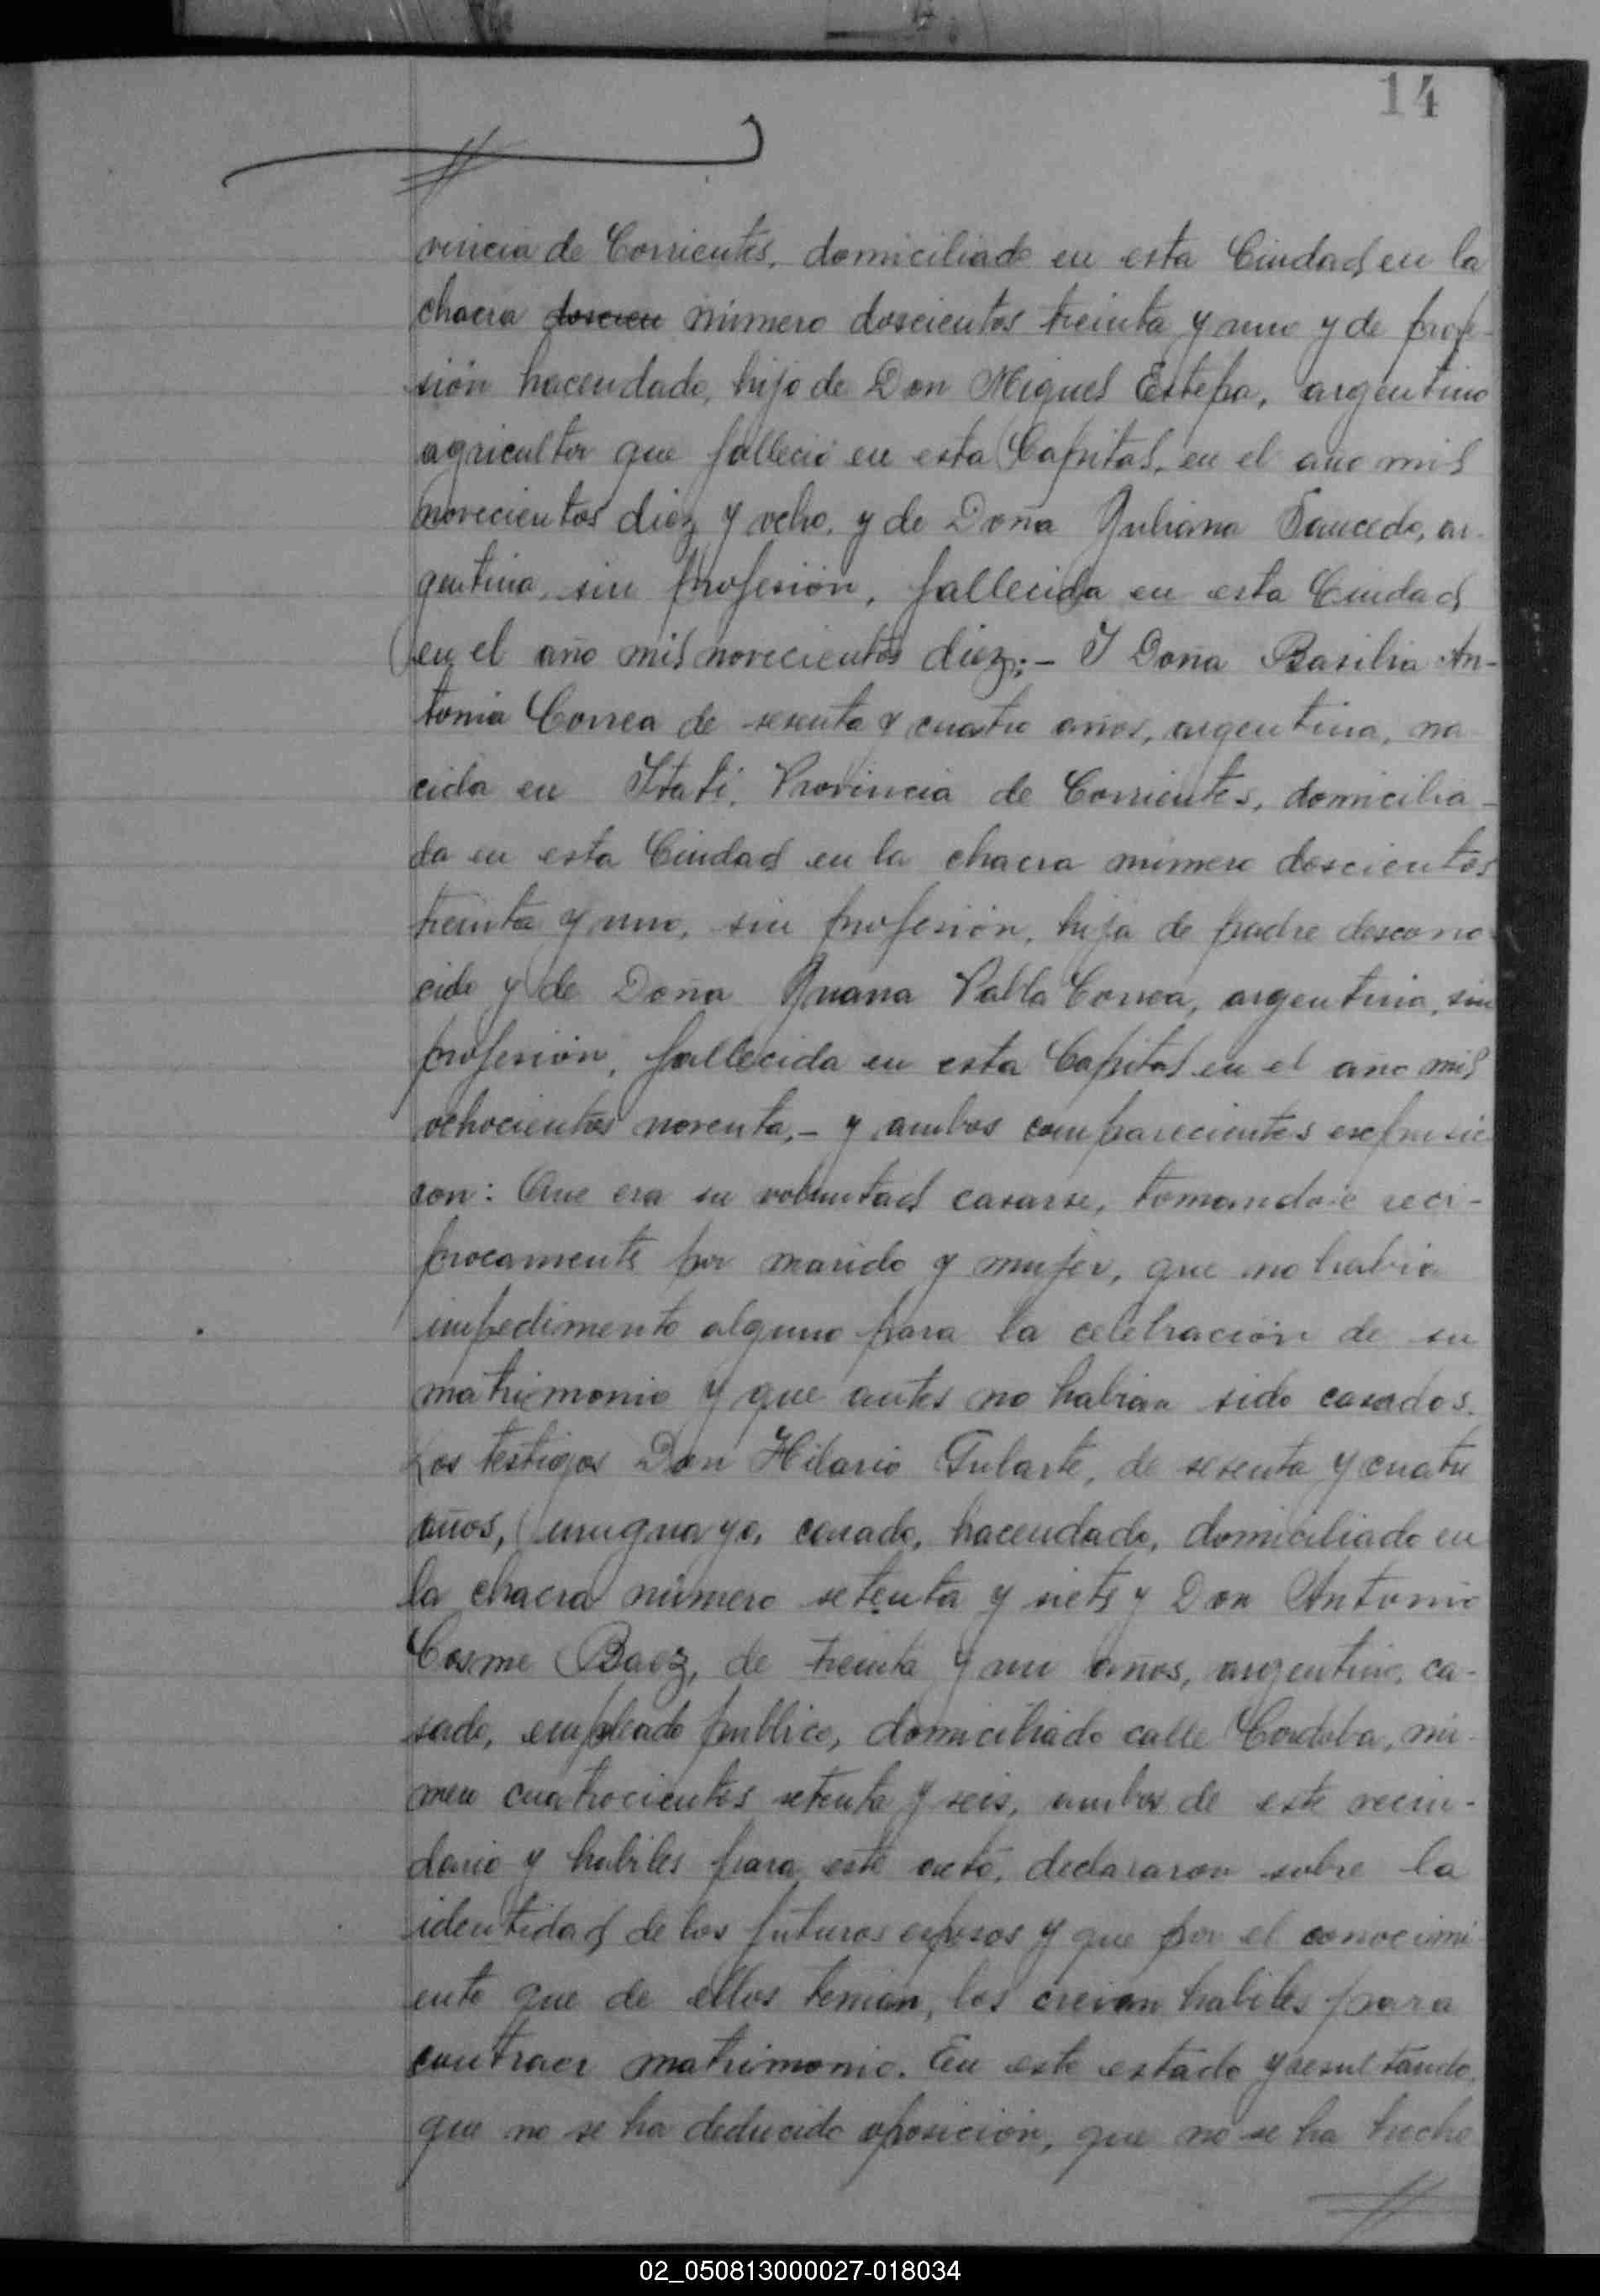 14
vincia de Corrientes, domiciliado en esta Ciudad en la
chacra doscien número doscientos treinta y uno y de profe-
sión hacendado, hijo de Don Miguel Estepa, argentino
agricultor que falleció en esta Capital, en el año mil
novecientos diez y ocho, y de Doña Juliana Saucedo, ar-
gentina, sin profesión, fallecida en esta Ciudad
en el año mil novecientos diez;- Y Doña Basilia An-
tonia Correa de sesenta y cuatro años, argentina, na
cida en Itatí, Provincia de Corrientes, domicilia-
da en esta Ciudad en la chacra número doscientos
treinta y uno, sin profesión, hija de padre descono
cido y de Doña Juana Pabla Correa, argentina, sin
profesión, fallecida en esta Capital en el año mil
ochocientos noventa,- y ambos comparecientes expusie
ron: Que era su voluntad casarse, tomandose reci-
procamente por marido y mujer, que no habia
impedimento alguno para la celebración de su
matrimonio y que antes no habian sido casados.
Los testigos Don Hilario Gularte, de sesenta y cuatro
años, uruguayo, casado, hacendado, domiciliado en
la chacra número setenta y siete y Don Antonio
Cosme Baez, de treinta y un años, argentino, ca-
sado, empleado publico, domiciliado calle Cordoba, nú-
mero cuatrocientos setenta y seis, ambos de este vecin-
dario y habiles para este acto, declararon sobre la
identidad de los futuros esposos y que por el conocimi
ento que de ellos tenian, los creian habiles para
contraer matrimonio. En este estado y resultando,
que no se ha deducido oposición, que no se ha hecho
02_050813000027-018034